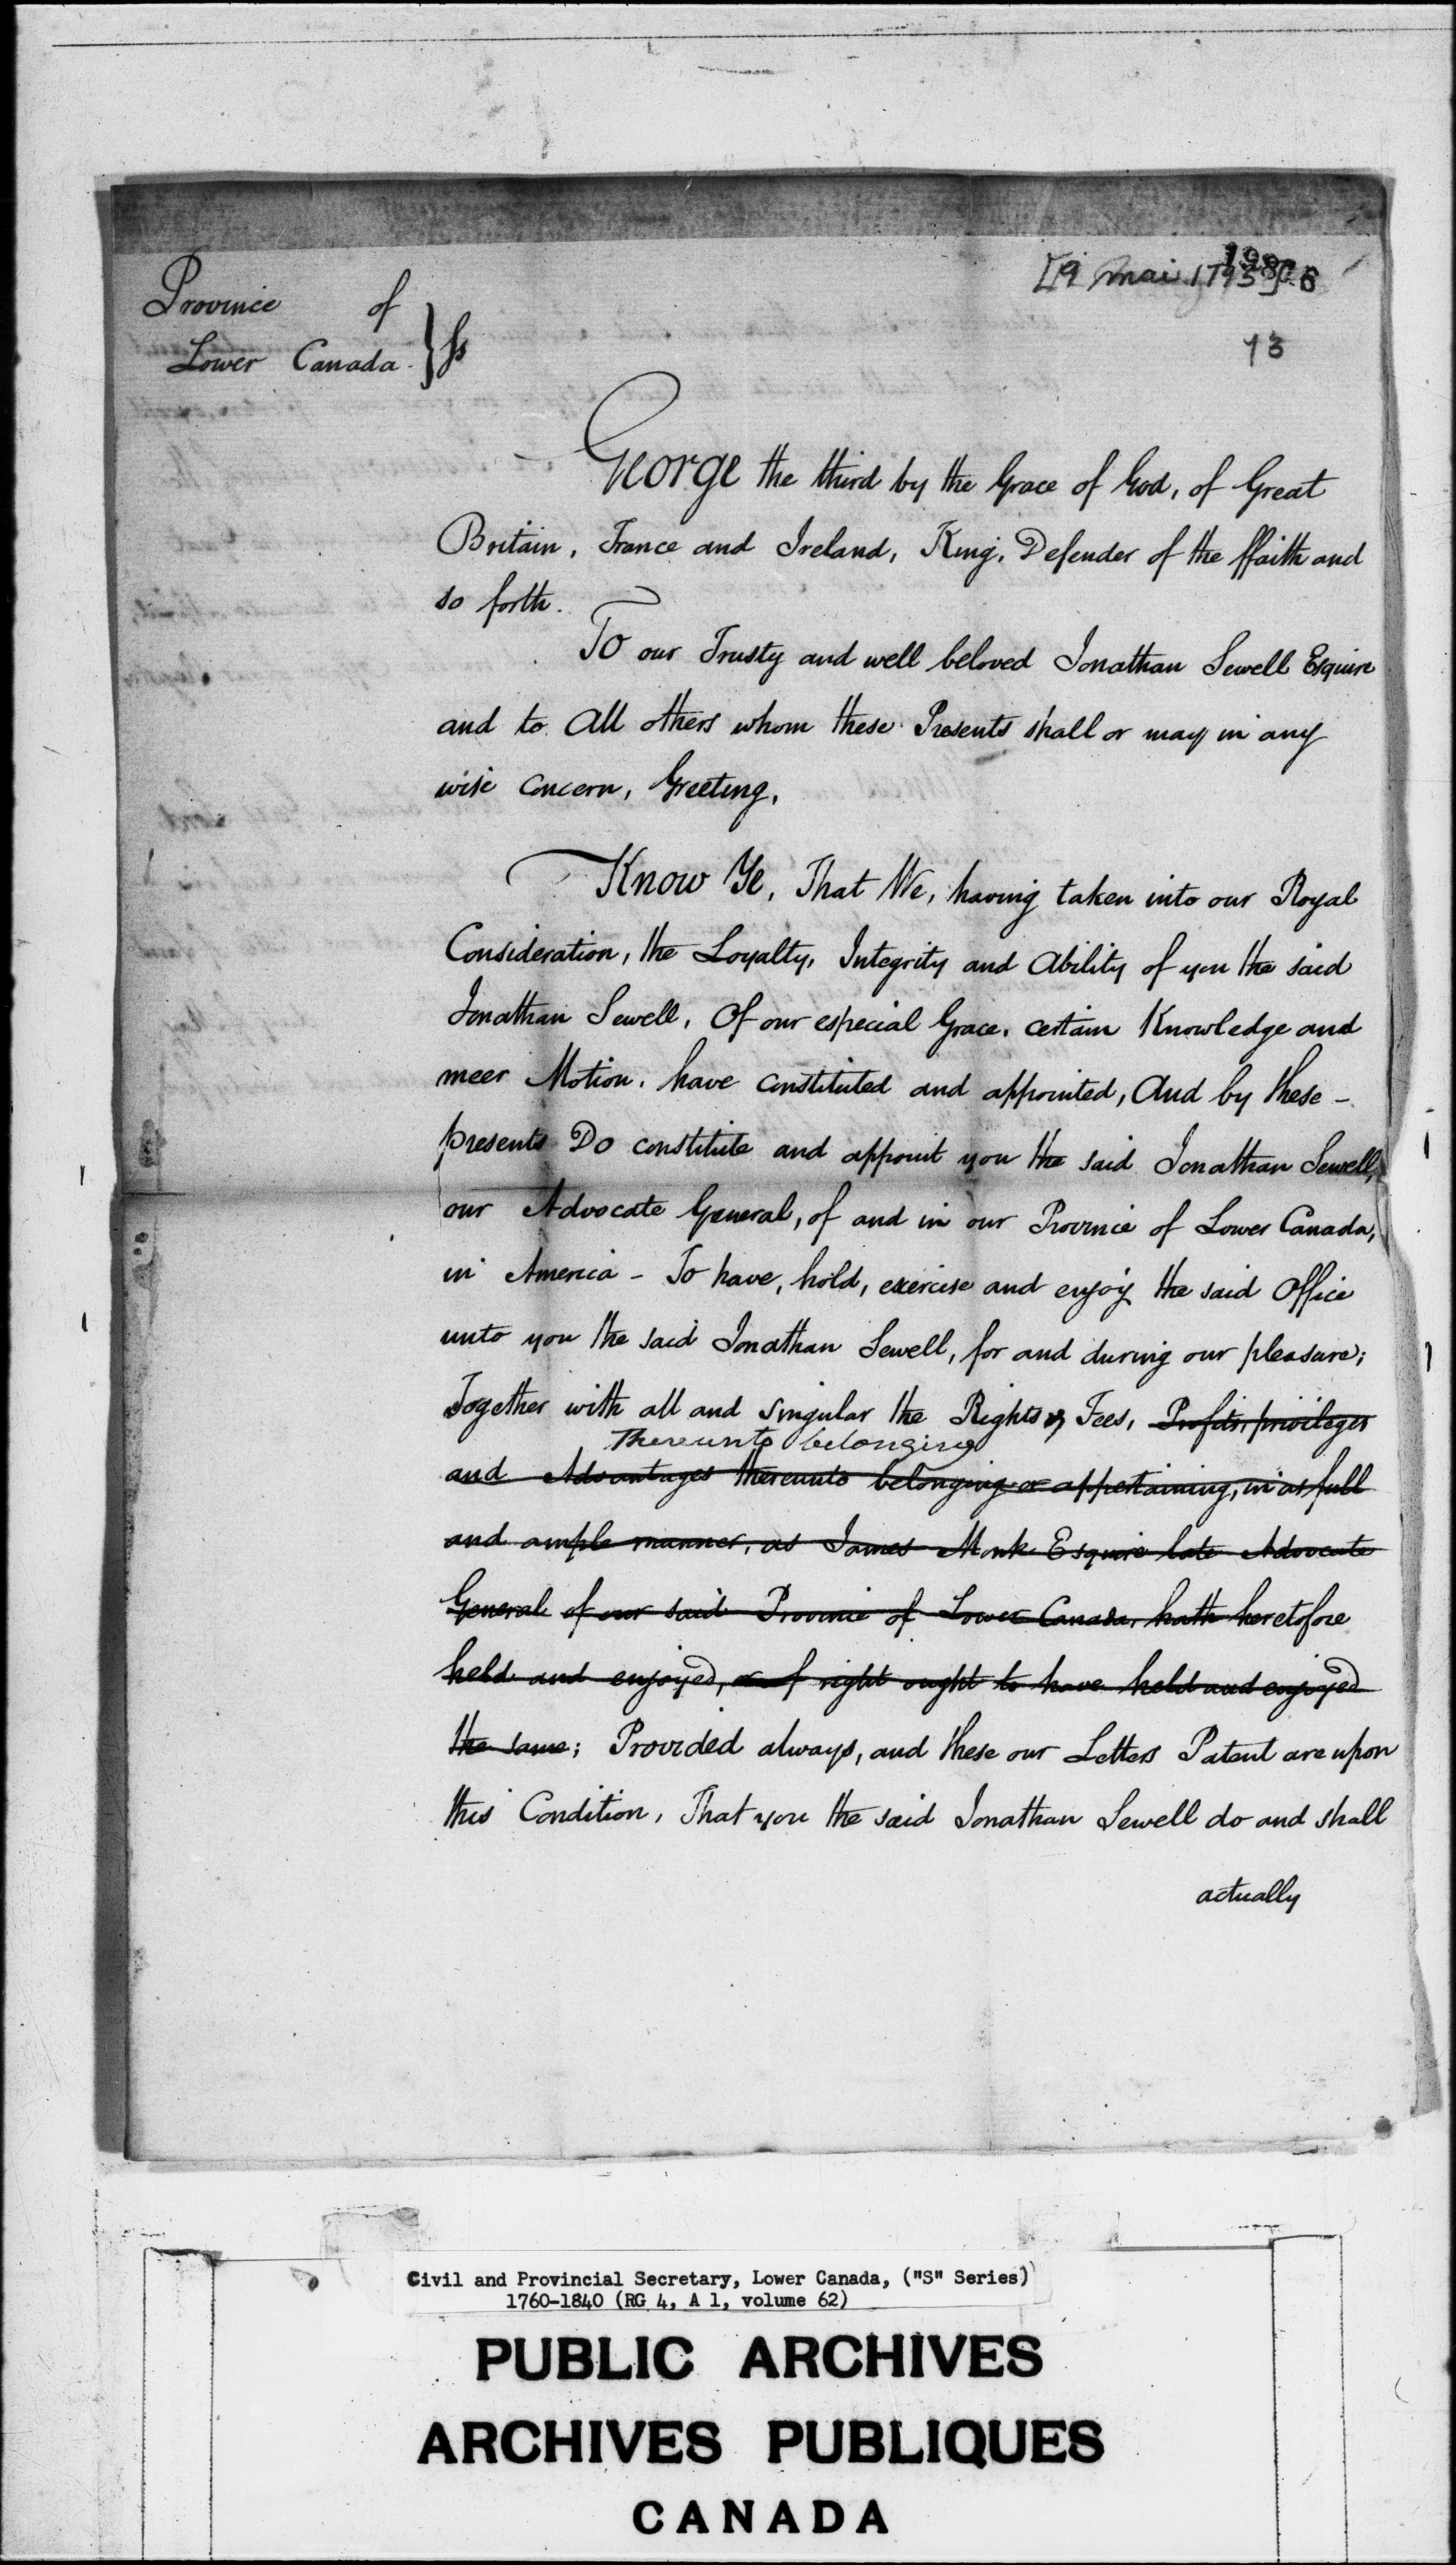 [9 mai 1795]
13
Province of
Lower Canada. } Ss
George the third by the Grace of God, of Great
Britain, France and Ireland, King, Defender of the ffaith and
so forth.
To our Trusty and well beloved Jonathan Sewell Esquire
and to All others whom these Presents shall or may in any
wise concern, Greeting,
Know Ye, That We, having taken into our Royal
Consideration, the Loyalty, Integrity and Ability of you the said
Jonathan Sewell, Of our especial Grace, certain Knowledge and
meer Motion, have constituted and appointed, And by these -
presents Do constitute and appoint you the said Jonathan Sewell,
our Advocate General, of and in our Province of Lower Canada,
in America - To have, hold, exercise and enjoy the said Office
unto you the said Jonathan Sewell, for and during our pleasure;
Together with all and singular the Rights & Fees, Profits, privileges
Thereunto belonging
and Advantages thereunto belonging or appertaining, in as full
and ample manner, as James Monk Esquire late Advocate
General of our said Province of Lower Canada, hath heretofore
held and enjoyed, or of right ought to have held and enjoyed
the same; Provided always, and these our Letters Patent are upon
this Condition, That you the said Jonathan Sewell do and shall
actually
Civil and Provincial Secretary, Lower Canada, ("S" Series)
1760-1840 (RG 4, A 1, volume 62)
PUBLIC ARCHIVES
ARCHIVES PUBLIQUES
CANADA